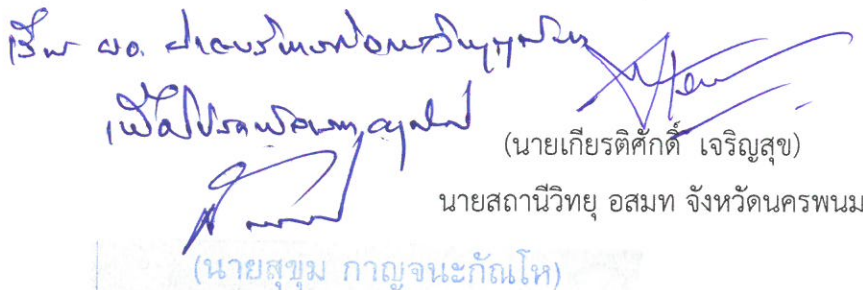 เรียน ผอ. ฝ่าย
เพื่อโปรดพิจารณาอนุมัติ
(นายเกียรติศักดิ์ เจริญสุข)
นายสถานีวิทยุ อสมท จังหวัดนครพนม
(นายสุขุม กาญจนะกัณโห)